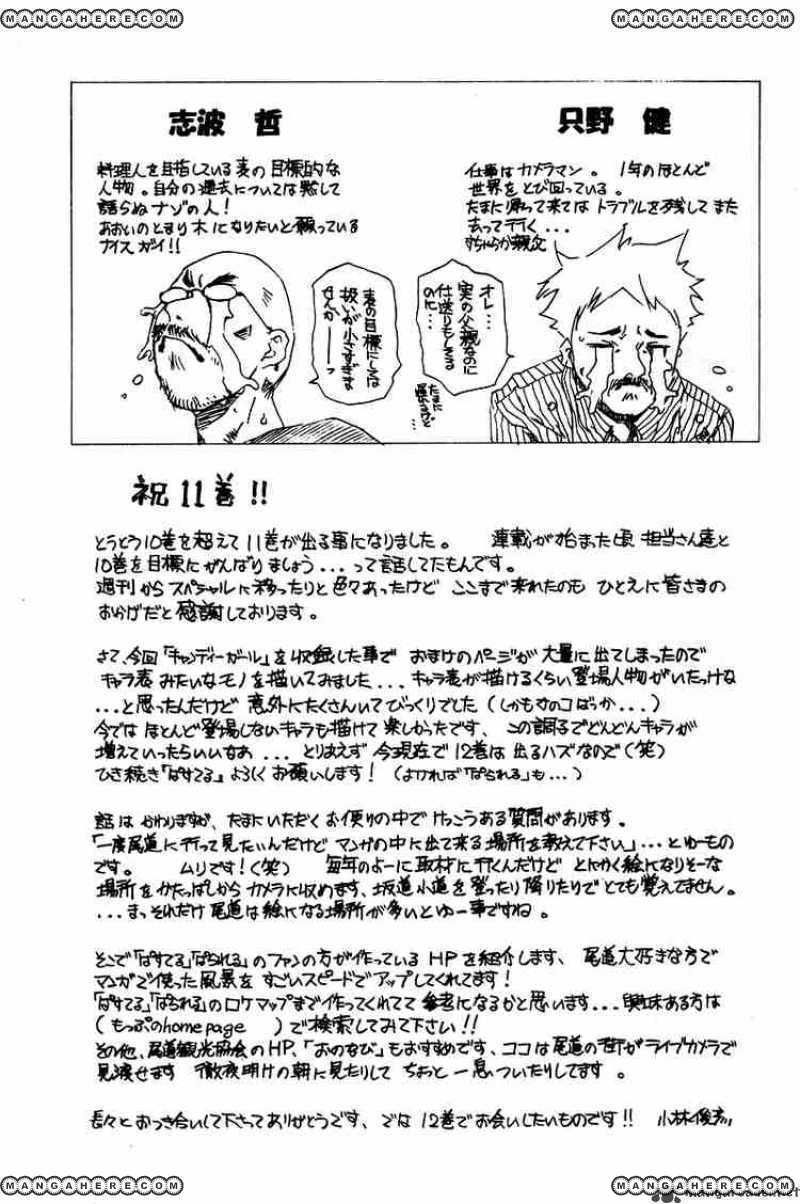 MANGAHERE.COM
MANGAHERE.COM
只野 健
仕事はカメラマン。1年のほとんど
世界をとび回っている。
たまに帰って来てはトラブルを残してまた
去って行く...
オレ...
実の父親なのに
仕送りもしてる
のに...
志波 哲
料理人を目指している麦の目標的な
人物。自分の過去については黙して
語らぬナゾの人!
あおいのとまり木になりたいと願っている
ナイスガイ!!
麦の目標にしては
扱いが小さすぎま
せんかーーッ
祝11巻!!
とうとう10巻を超えて11巻が出る事になりました。 連載が始まった頃 担当さん達と
10巻を目標にがんばりましょう...って話してたもんです。
週刊からスペシャルに移ったりと色々あったけど ここまで来れたのも ひとえに皆さまの
おかげだと感謝しております。
さて、今回「キャンディーガール」を収録した事で おまけのページが大量に出てしまったので
キャラ表みたいなモノを描いてみました...キャラ表が描けるくらい登場人物がいたっけな
...と思ったんだけど意外にたくさんいてびっくりでした(しかもオのコばっか...)
今ではほとんど登場しないキャラも描けて楽しかったです、この調子でどんどんキャラが
増えていったらいいなあ... とりあえず今現在で12巻は出るハズなので(笑)
ひき続き「ぱすてる」よろしくお願いします!(よければ「ぱられる」も...)
話はかわりますが、たまにいただくお便りの中でけっこうある質問があります。
「一度尾道に行って見たいんだけどマンガの中に出て来る場所を教えて下さい」...とゆーもの
です。 ムリです!(笑) 毎年のよーに取材に行くんだけど とにかく絵になりそーな
場所をかたっぱしからカメラに収めます、坂道小道を登ったり降りたりでとても覚えてません。
...まっそれだけ尾道は絵になる場所が多いとゆー事ですね。
そこで「ぱすてる」「ぱられる」のファンの方が作っているHPを紹介します、尾道大好きな方で
マンガで使った風景をすごいスピードでアップしてくれてます!
「ぱすてる」「ぱられる」のロケマップまで作ってくれてて参考になるかと思います...興味ある方は
(もっぷのhomepage )で検索してみて下さい!!
その他、尾道観光協会のHP、「おのなび」もおすすめです、ココは尾道の街がライブカメラで
見渡せます 徹夜明けの朝に見たりして ちょっと一息ついたりしてます。
長々とおつき合いして下さってありがとうです、では12巻でお会いしたいものです!! 小林俊彦
MANGAHERE.COM